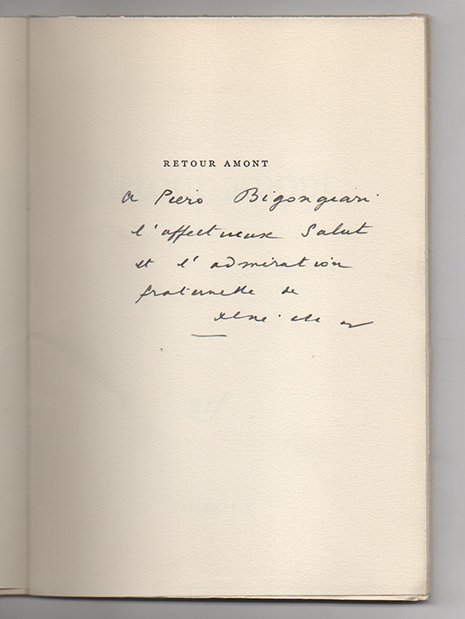 RETOUR AMONT
a Piero Bigongiari
l'affectueux salut
et l'admiration
fraternelle de
René Char